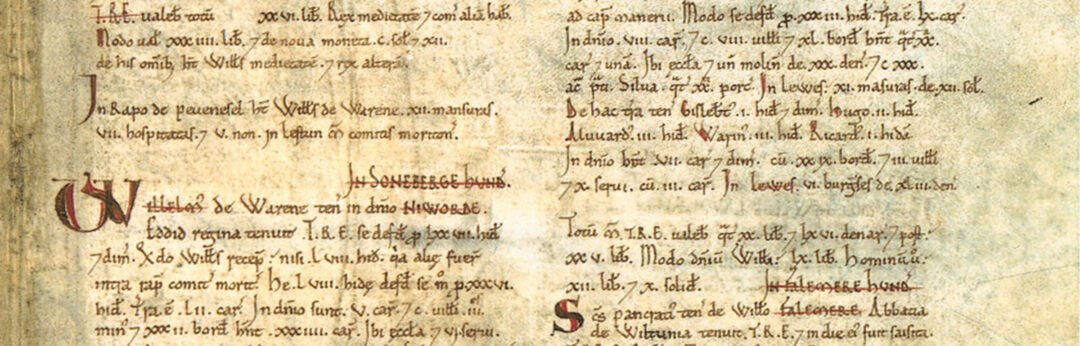 T.R.E. ualeb̄ totū xxvi. lib̄. Rex medietatē ⁊ com̄ aliā hab̄.
Modo ual̄ xxxiiii. lib̄. ⁊ de noua moneta .c. sol̄ ⁊ xii.
de his om̄ib; ht̄ Wiłłs medietatē. ⁊ rex alterā.
In Rapo de peuenesel ht̄ Wiłłs de Warene .xii. mansuras.
vii. hospitatas. ⁊ v. non.
In Soneberge hund̄.
Willelm̄ de Warene ten̄ in dn̄io Niworde.
Eddid regina tenuit. T.R.E. se defd̄ p̱ hid̄
⁊ dim̄. Xdo Wiłłs recep̄: nisi .lviii. hid̄. q̄a alię fuer̄
int̄ra rap̄ comit̄ morit̄. He .lviii. hidę defd̄ se m̊ p̱ xxxvi.
hid̄. T̄ra .ē. lii. car̄. In dn̄io sunt .v. car̄. ⁊ c. uiłłi
min̄ ⁊ xxxii. bord̄ hn̄t .xxxiiii. car̄. Ibi ęcclā ⁊ vi. serui.
ad cap̄ manerii. Modo se defd̄ p̱ xxxiii. hid̄. T̄ra .ē. lx. car̄.
In dn̄io .viii. car̄. ⁊ c. viii. uiłłi ⁊ xl. bord̄ hn̄t qt̄ xx.
car̄ ⁊ unā. Ibi ęcclā ⁊ un̄ molin̄ de .xxx. den̄. ⁊ c xxx.
ac̄ p̄ti. Silua .qt̄ xx. porc̄. In lewes .xi. masuras. de .xii. sol̄.
De hac t̄ra ten̄ Gislebt̄ .i. hid̄ ⁊ dim̄. Hugo .ii. hid̄.
Aluuard̄ .iii. hid̄. Warin̄ .iii. hid̄. Ricard̄ .i. hidā.
In dn̄io hn̄t .vii. car̄ ⁊ dim̄. cū .xxix. bord̄. ⁊ iii. uiłłi
⁊ x. serui. cū .iii. car̄. In lewes .vi. burgses de .xliii. den̄.
Totū m̄. T.R.E. ualeb̄ qt̄ xx. lib̄. ⁊ lxvi. denar̄. ⁊ post:
xxv. lib̄. Modo dn̄iū Wiłłi: lx. lib̄. hominū ū:
xii. lib̄. ⁊ x. solid̄. In falemere hund̄.
Scs̄ pancrati᷒ ten̄ de Wiłło falemere. Abbatia
de Wiltunia tenuit .T.R.E. ⁊ in die ei᷒ fuit saisita.